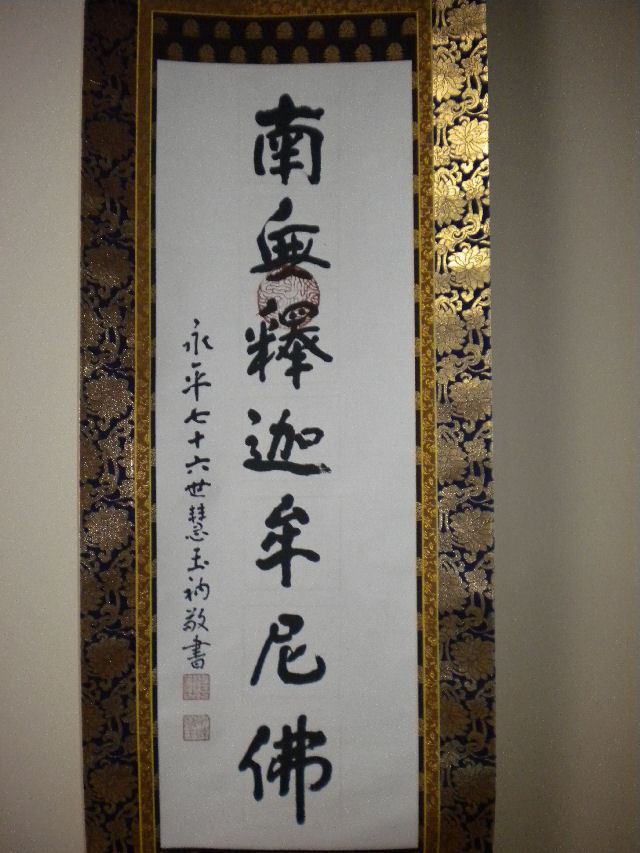 南無釋迦牟尼佛
永平七十六世慧玉衲敬書